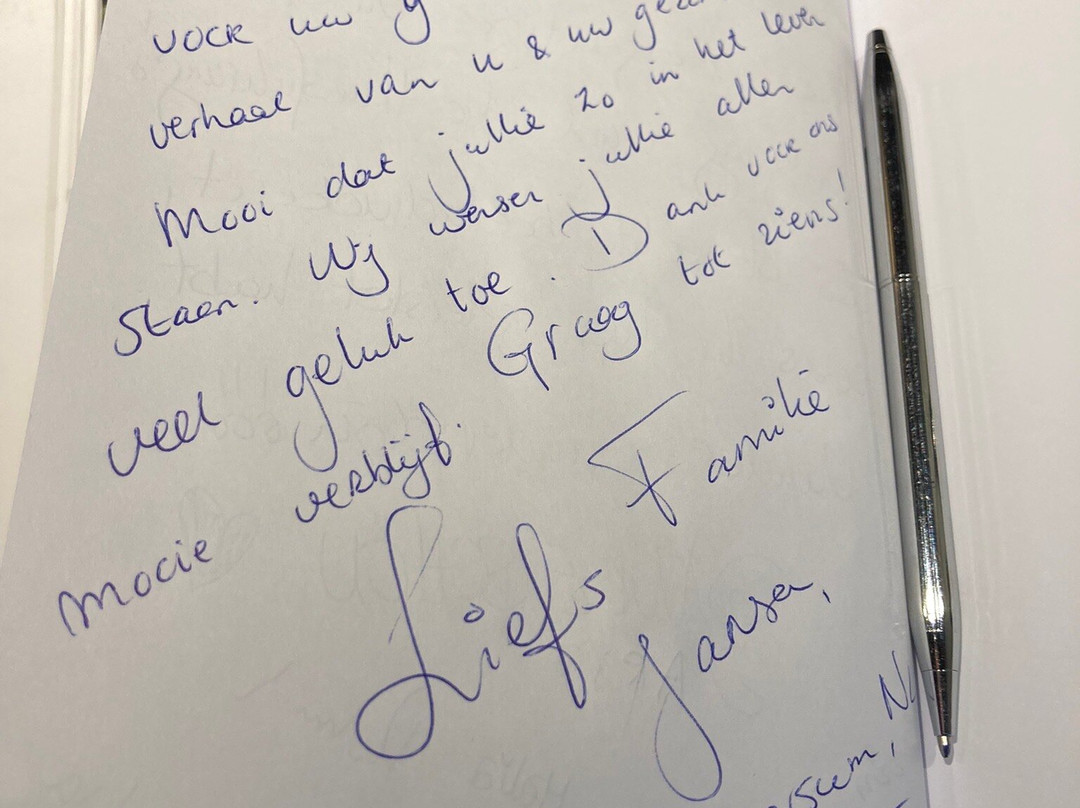 voor uw g
verhaal van u & uw gez
Mooi dat jullie zo in het leven
staan. Wij wensen jullie allen
veel geluk toe. Dank voor ons
mooie verblijf. Graag tot ziens!
Liefs Familie
Jansen,
sum, NL